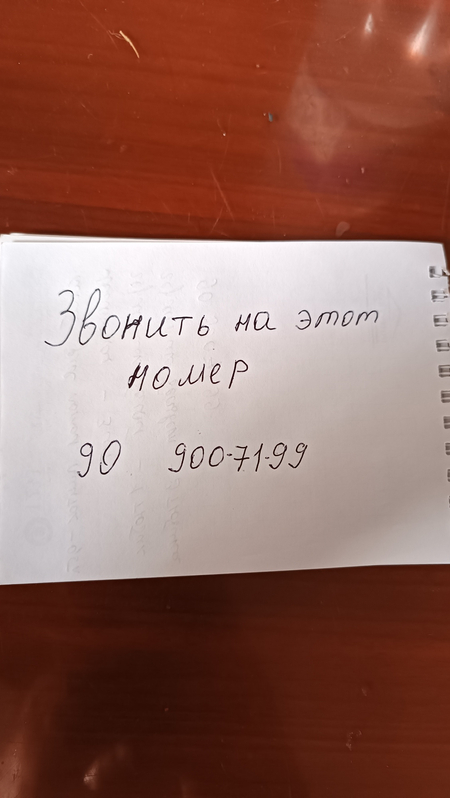 Звонить на этот
номер
90 900-71-99